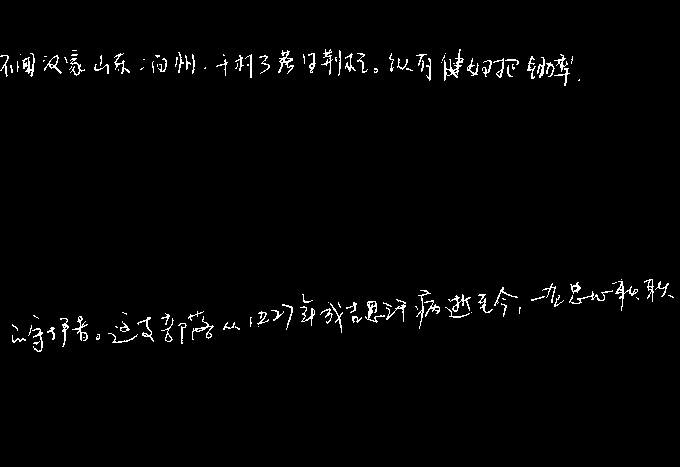 不闻汉家山东二百州，千村万落生荆杞。纵有健妇把锄犁，
的守护者。这支部落从1227年成吉思汗病逝至今，一直忠心耿耿